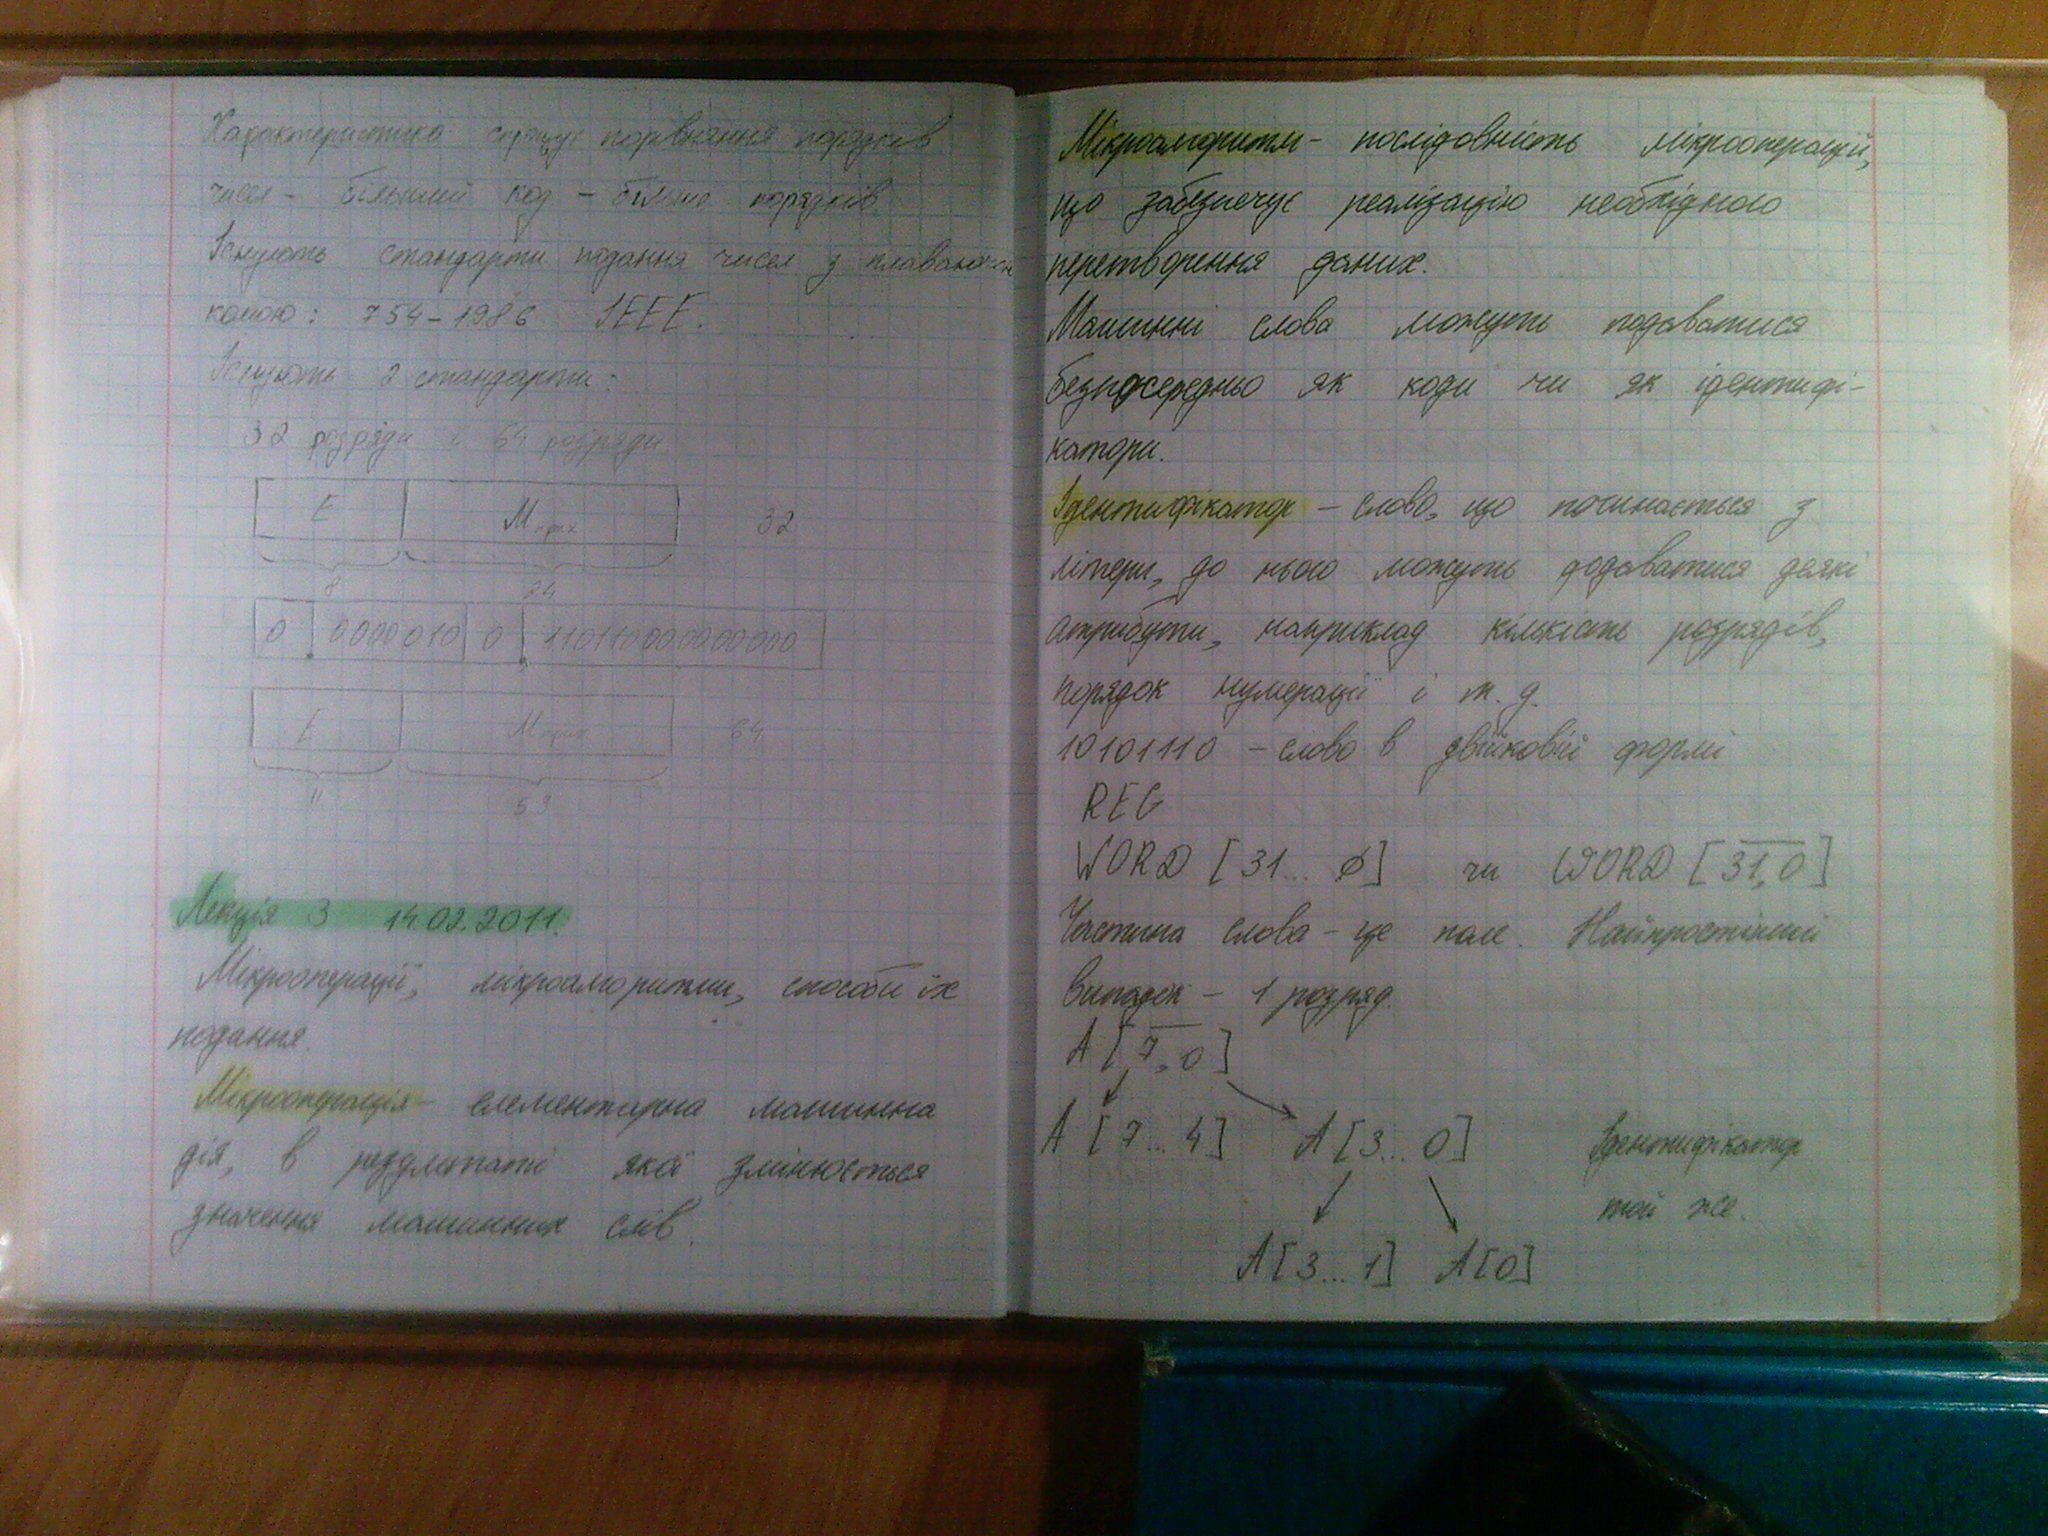 Характеристика спрощує порівняння порядків
чисел - більший код - більше порядків.
Існують стандарти подання чисел з плаваючою
комою: 754-1986 IEEE.
Існують 2 стандарти:
32 розряди і 64 розряди.
E Mпрям 32
8 24
0 0000010 0 11011000000000
E Mпрям 64
11 53
Лекція 3 14.02.2011.
Мікрооперації, мікроалгоритми, способи їх
подання.
Мікрооперація - елементарна машинна
дія, в результаті якої змінюється
значення машинних слів.
Мікроалгоритм - послідовність мікрооперацій,
що забезпечує реалізацію необхідного
перетворення даних.
Машинні слова можуть подаватися
безпосередньо як коди чи як ідентифі-
катори.
Ідентифікатор - слово, що починається з
літери, до нього можуть додаватися деякі
атрибути, наприклад кількість розрядів,
порядок нумерації і т. д.
10101110 - слово в двійковій формі
REG
WORD [31... 0] чи WORD [31,0]
Частина слова - це поле. Найпростіший
випадок - 1 розряд.
A [7,0]
A [7... 4] A [3... 0] Ідентифікатор
той же.
A [3... 1] A [0]